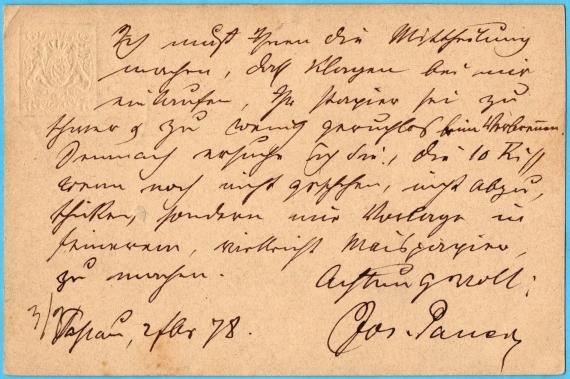 Ich muß Ihnen die Mittheilung
machen, daß Klagen bei mir
einlaufen, Ihr Papier sei zu
theuer & zu wenig geruchlos beim Verbrennen.
Demnach ersuche ich Sie, die 10 Riß
wenn noch nicht geschehen, nicht abzu,
schicken, sondern mir Vorlage in
feinerem, vielleicht Maispapier,
zu machen. Achtungsvoll:
Passau, 2 78. Jos. Pauer